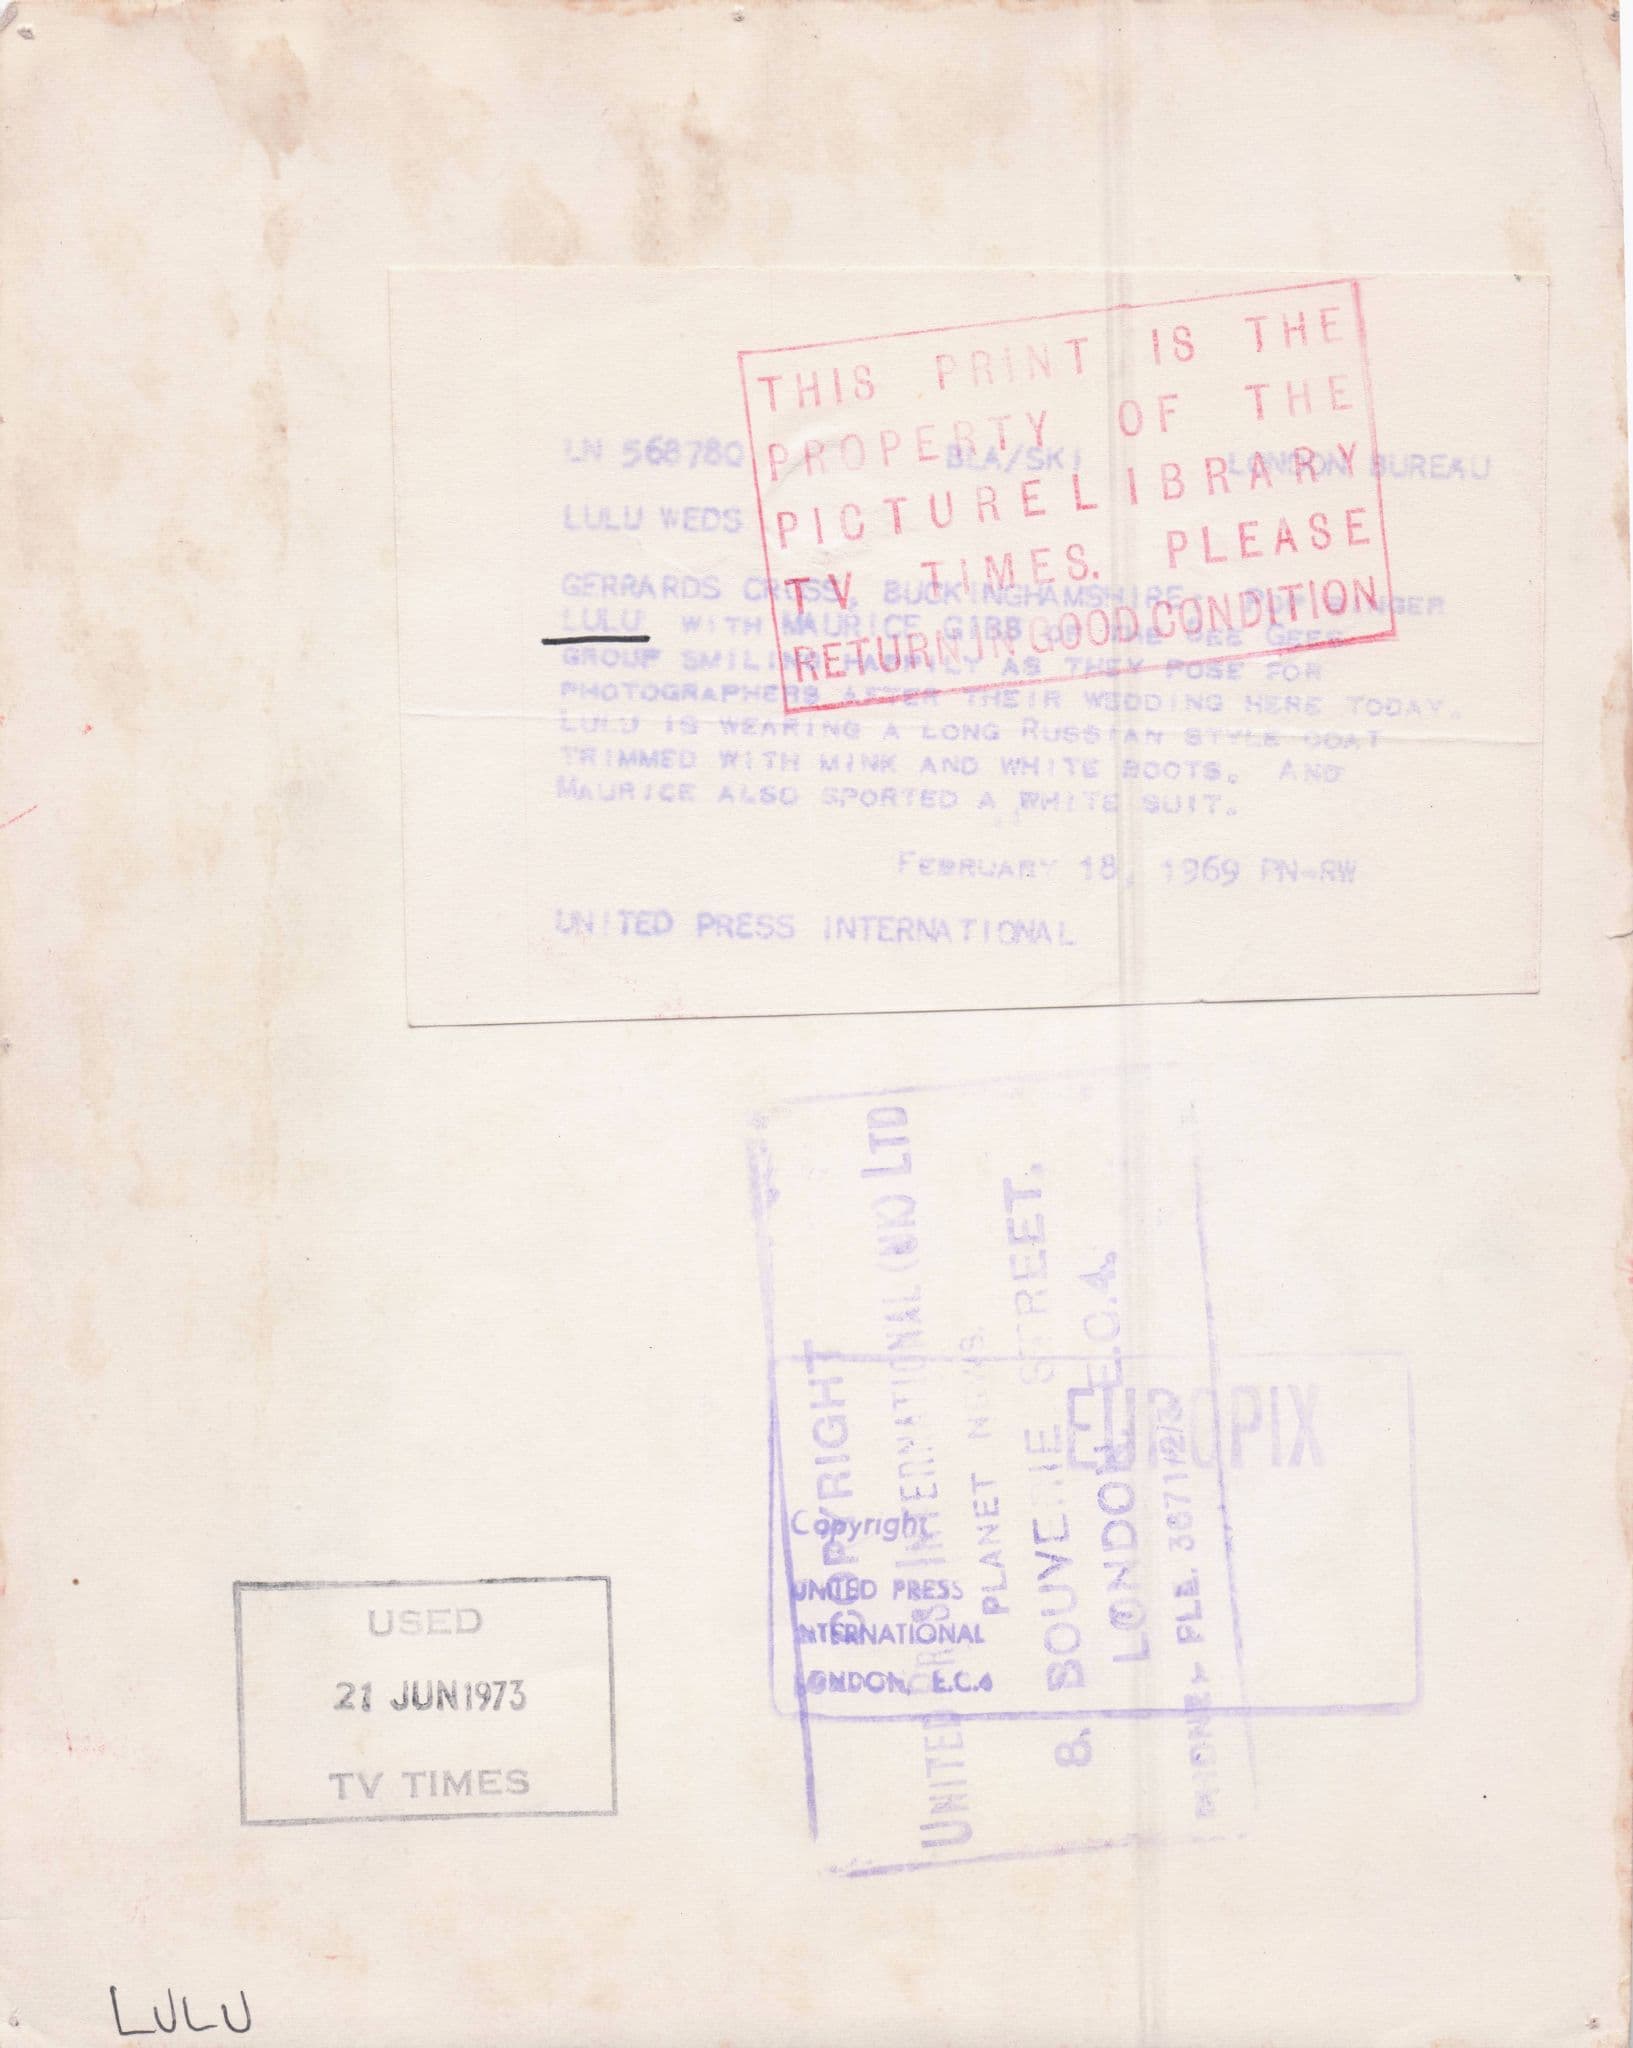 THIS PRINT IS THE
PROPERTY OF THE
PICTURE LIBRARY
TV TIMES. PLEASE
RETURN IN GOOD CONDITION
LN 568780 BLA/SKI LONDON BUREAU
LULU WEDS
GERRARDS CROSS, BUCKINGHAMSHIRE- POP SINGER
LULU WITH MAURICE GIBB OF THE BEE GEES
GROUP SMILING HAPPILY AS THEY POSE FOR
PHOTOGRAPHERS AFTER THEIR WEDDING HERE TODAY.
LULU IS WEARING A LONG RUSSIAN STYLE COAT
TRIMMED WITH MINK AND WHITE BOOTS. AND
MAURICE ALSO SPORTED A WHITE SUIT.
FEBRUARY 18, 1969 PN-RW
UNITED PRESS INTERNATIONAL
COPYRIGHT
UNITED PRESS INTERNATIONAL (UK) LTD
PLANET NEWS.
8. BOUVERIE STREET.
LONDON E.C.4.
PHONE:- FLE. 3671/2/3
EUROPIX
Copyright
UNITED PRESS
INTERNATIONAL
LONDON, E.C.4
USED
21 JUN 1973
TV TIMES
LULU